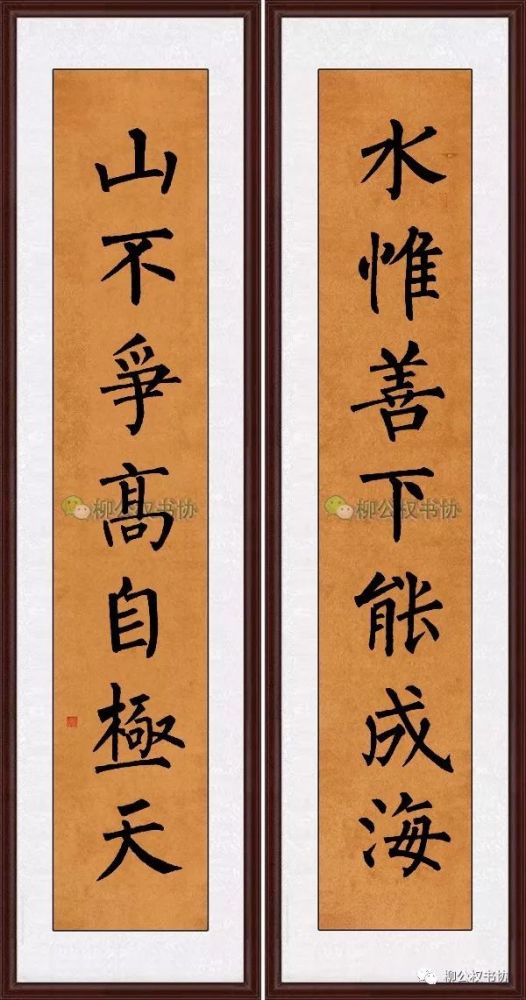 水惟善下能成海
山不爭高自極天
柳公权书协
柳公权书协
柳公权书协